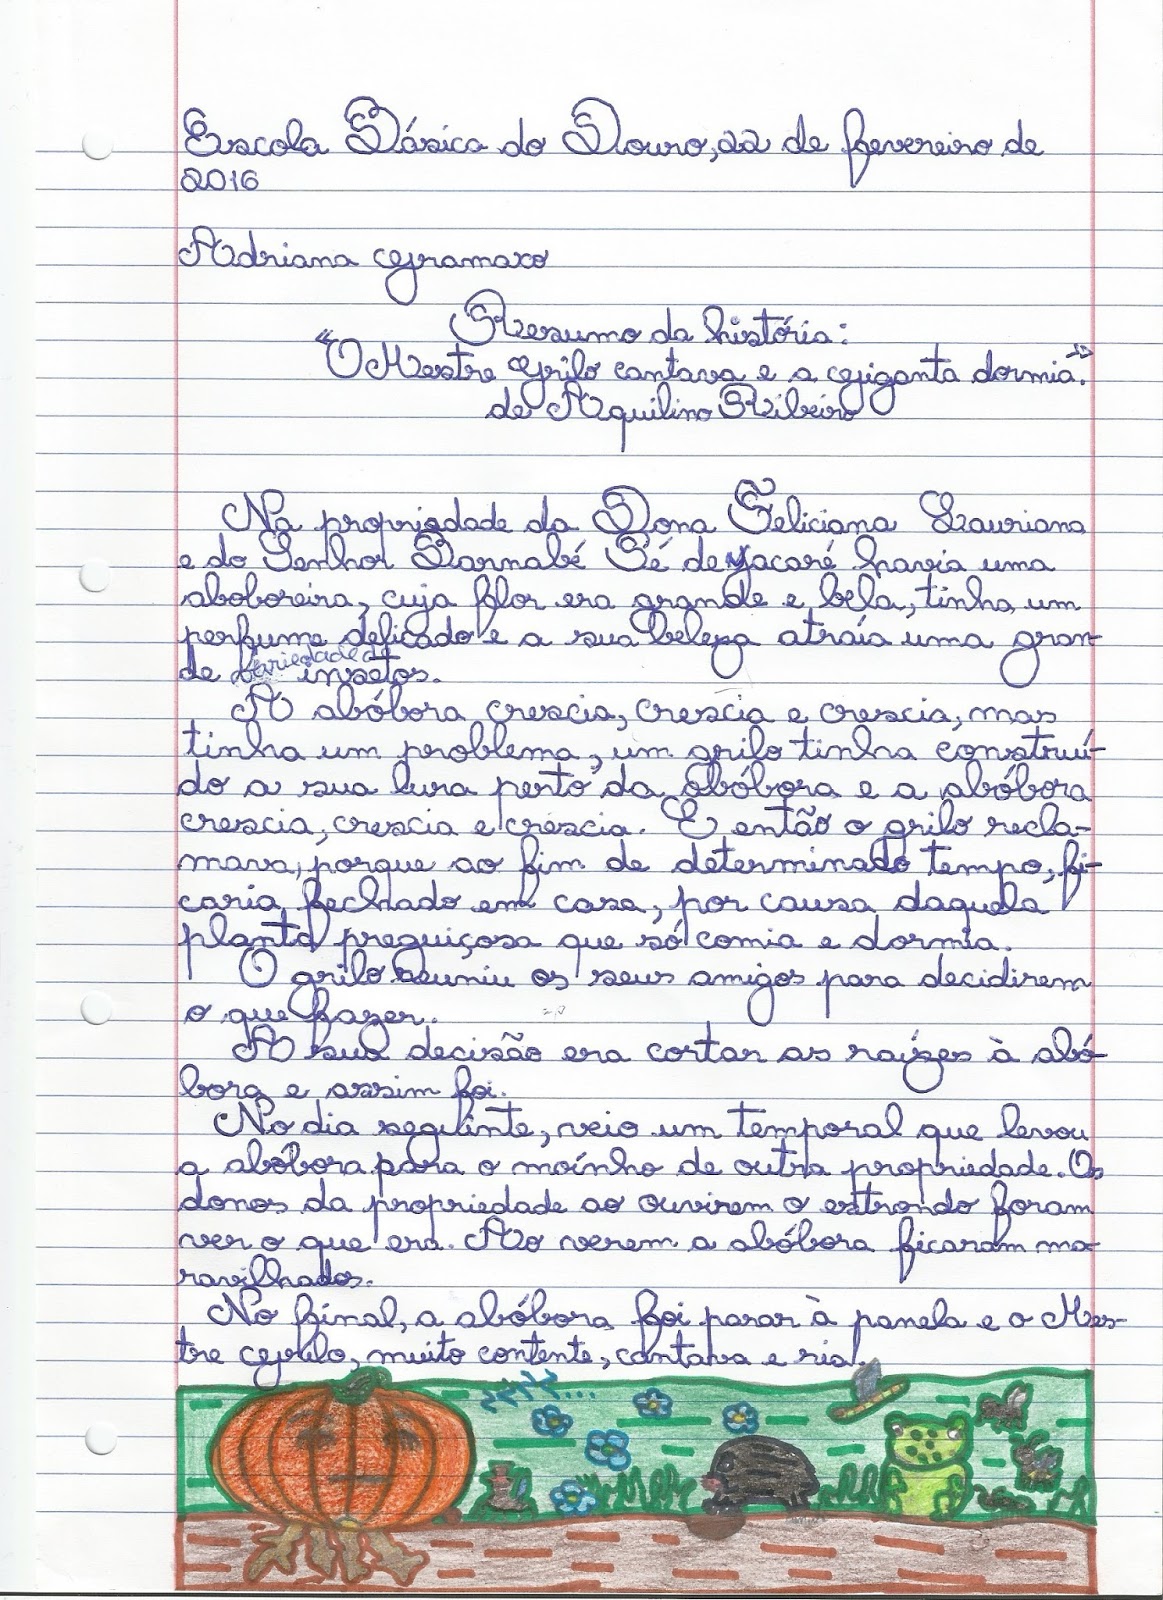 Escola Básica do Douro, 22 de fevereiro de
2016
Adriana Gramaxo
Resumo da história:
"O Mestre Grilo cantava e a Giganta dormia."
de Aquilino Ribeiro
Na propriedade da Dona Feliciana Lauriana
e do Senhor Barnabé Pé de Jacaré havia uma
aboboreira, cuja flor era grande e bela, tinha um
perfume delicado e a sua beleza atraía uma gran-
de variedade de insetos.
A abóbora crescia, crescia e crescia, mas
tinha um problema, um grilo tinha construí-
do a sua lura perto da abóbora e a abóbora
crescia, crescia e crescia. E então o grilo recla-
mava, porque ao fim de determinado tempo, fi-
caria fechado em casa, por causa daquela
planta preguiçosa que só comia e dormia.
O grilo reuniu os seus amigos para decidirem
o que fazer.
A sua decisão era cortar as raízes à abó-
bora e assim foi.
No dia seguinte, veio um temporal que levou
a abóbora para o moínho de outra propriedade. Os
donos da propriedade ao ouvirem o estrondo foram
ver o que era. Ao verem a abóbora ficaram ma-
ravilhados.
No final, a abóbora foi parar à panela e o Mes-
tre Grilo, muito contente, cantava e ria.